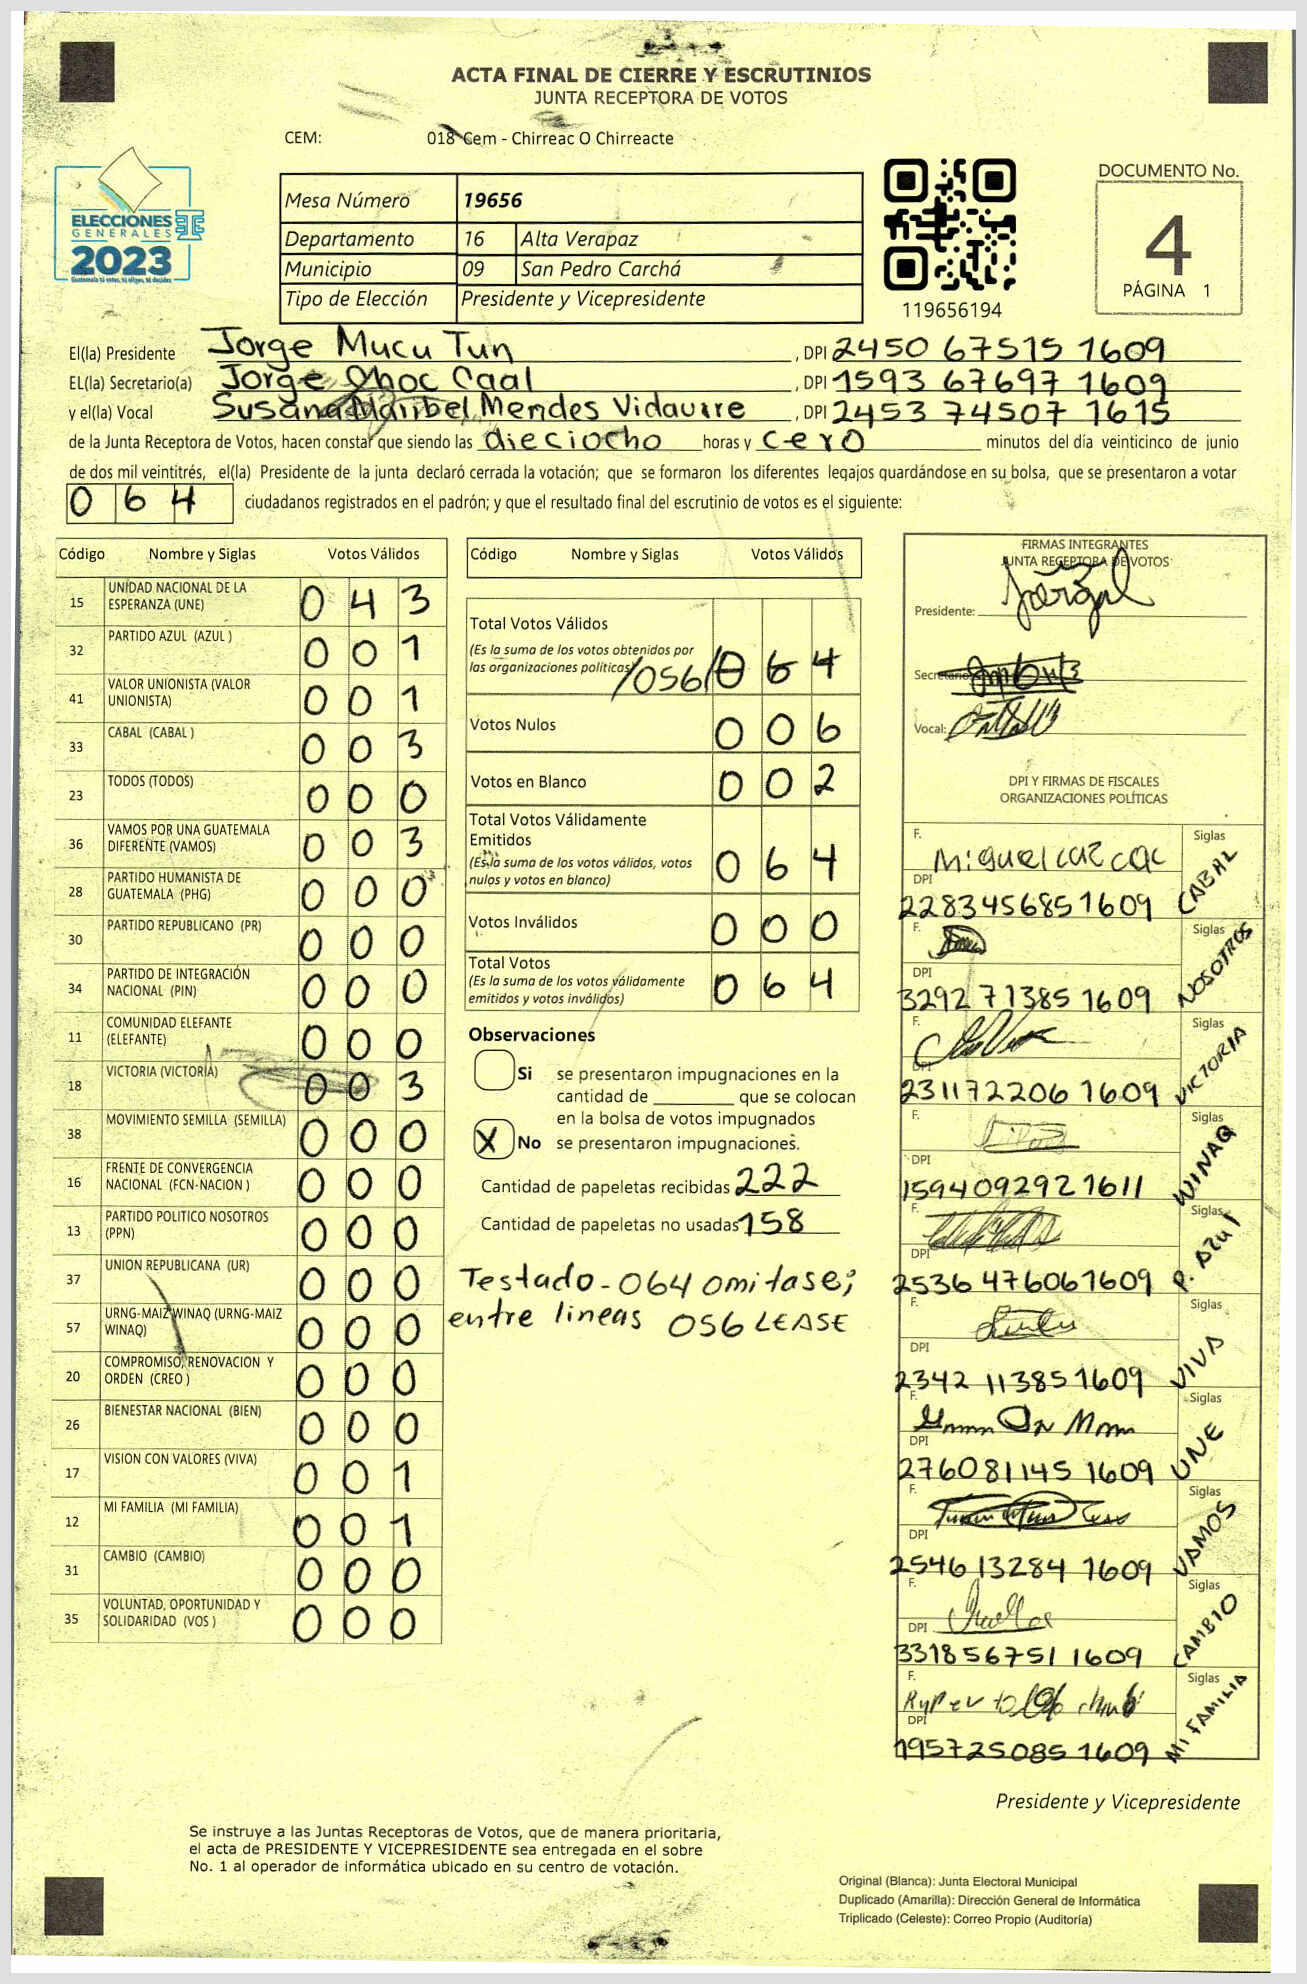 ACTA FINAL DE CIERRE Y ESCRUTINIOS
JUNTA RECEPTORA DE VOTOS
CEM: 018 Cem - Chirreac O Chirreacte
ELECCIONES
GENERALES
2023
Mesa Número 19656
Departamento 16 Alta Verapaz
Municipio 09 San Pedro Carchá
Tipo de Elección Presidente y Vicepresidente
119656194
DOCUMENTO No.
4
PÁGINA 1
El(la) Presidente Jorge Mucu Tun, DPI 2450 67515 1609
EL(la) Secretario(a) Jorge Choc Caal, DPI 1593 67697 1609
y el(la) Vocal Susana Maribel Mendes Vidaurre, DPI 2453 74507 1615
de la Junta Receptora de Votos, hacen constar que siendo las dieciocho horas y cero minutos del día veinticinco de junio
de dos mil veintitrés, el(la) Presidente de la junta declaró cerrada la votación; que se formaron los diferentes legajos quardándose en su bolsa, que se presentaron a votar
0 6 4 ciudadanos registrados en el padrón; y que el resultado final del escrutinio de votos es el siguiente:
Código Nombre y Siglas Votos Válidos
15 UNIDAD NACIONAL DE LA ESPERANZA (UNE) 0 4 3
32 PARTIDO AZUL (AZUL ) 0 0 1
41 VALOR UNIONISTA (VALOR UNIONISTA) 0 0 1
33 CABAL (CABAL ) 0 0 3
23 TODOS (TODOS) 0 0 0
36 VAMOS POR UNA GUATEMALA DIFERENTE (VAMOS) 0 0 3
28 PARTIDO HUMANISTA DE GUATEMALA (PHG) 0 0 0
30 PARTIDO REPUBLICANO (PR) 0 0 0
34 PARTIDO DE INTEGRACIÓN NACIONAL (PIN) 0 0 0
11 COMUNIDAD ELEFANTE (ELEFANTE) 0 0 0
18 VICTORIA (VICTORIA) 0 0 3
38 MOVIMIENTO SEMILLA (SEMILLA) 0 0 0
16 FRENTE DE CONVERGENCIA NACIONAL (FCN-NACION ) 0 0 0
13 PARTIDO POLITICO NOSOTROS (PPN) 0 0 0
37 UNION REPUBLICANA (UR) 0 0 0
57 URNG-MAIZ WINAQ (URNG-MAIZ WINAQ) 0 0 0
20 COMPROMISO, RENOVACION Y ORDEN (CREO ) 0 0 0
26 BIENESTAR NACIONAL (BIEN) 0 0 0
17 VISION CON VALORES (VIVA) 0 0 1
12 MI FAMILIA (MI FAMILIA) 0 0 1
31 CAMBIO (CAMBIO) 0 0 0
35 VOLUNTAD, OPORTUNIDAD Y SOLIDARIDAD (VOS ) 0 0 0
Código Nombre y Siglas Votos Válidos
Total Votos Válidos
(Es la suma de los votos obtenidos por
las organizaciones políticas) /056/ 0 6 4
Votos Nulos 0 0 6
Votos en Blanco 0 0 2
Total Votos Válidamente
Emitidos
(Es la suma de los votos válidos, votos
nulos y votos en blanco) 0 6 4
Votos Inválidos 0 0 0
Total Votos
(Es la suma de los votos válidamente
emitidos y votos inválidos) 0 6 4
Observaciones
Si se presentaron impugnaciones en la
cantidad de ________ que se colocan
en la bolsa de votos impugnados
X No se presentaron impugnaciones.
Cantidad de papeletas recibidas 222
Cantidad de papeletas no usadas 158
Testado - 064 omitase;
entre lineas 056 LEASE
FIRMAS INTEGRANTES
JUNTA RECEPTORA DE VOTOS
Presidente:
Secretario
Vocal:
DPI Y FIRMAS DE FISCALES
ORGANIZACIONES POLÍTICAS
F. Miguel caz cac Siglas CABAL
DPI 228345685 1609
F. Siglas NOSOTROS
DPI 3292 71385 1609
F. Siglas VICTORIA
DPI 231172206 1609
F. Siglas WINAQ
DPI 1594092921611
F. Siglas P. Azul
DPI 2536 47606 1609
F. Siglas VIVA
DPI 2342 11385 1609
F. Siglas UNE
DPI 276081145 1609
F. Siglas VAMOS
DPI 2546 13284 1609
F. Siglas CAMBIO
DPI 331856751 1609
F. Siglas MI FAMILIA
DPI 195725085 1609
Presidente y Vicepresidente
Se instruye a las Juntas Receptoras de Votos, que de manera prioritaria,
el acta de PRESIDENTE Y VICEPRESIDENTE sea entregada en el sobre
No. 1 al operador de informática ubicado en su centro de votación.
Original (Blanca): Junta Electoral Municipal
Duplicado (Amarilla): Dirección General de Informática
Triplicado (Celeste): Correo Propio (Auditoría)